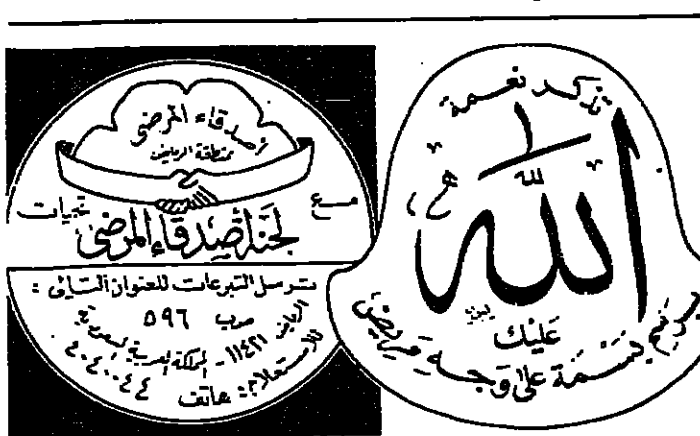 تذكر نعمة
الله
عليك
برسم بسمة على وجه مريض
أصدقاء المرضى
بمنطقة الرياض
مع تحيات
لجنة أصدقاء المرضى
ترسل التبرعات للعنوان التالي :
صرب ٥٩٦
الرياض ١١٤٢١ - المملكة العربية السعودية
للاستعلام : هاتف ٤٠٤٠٠٤٤